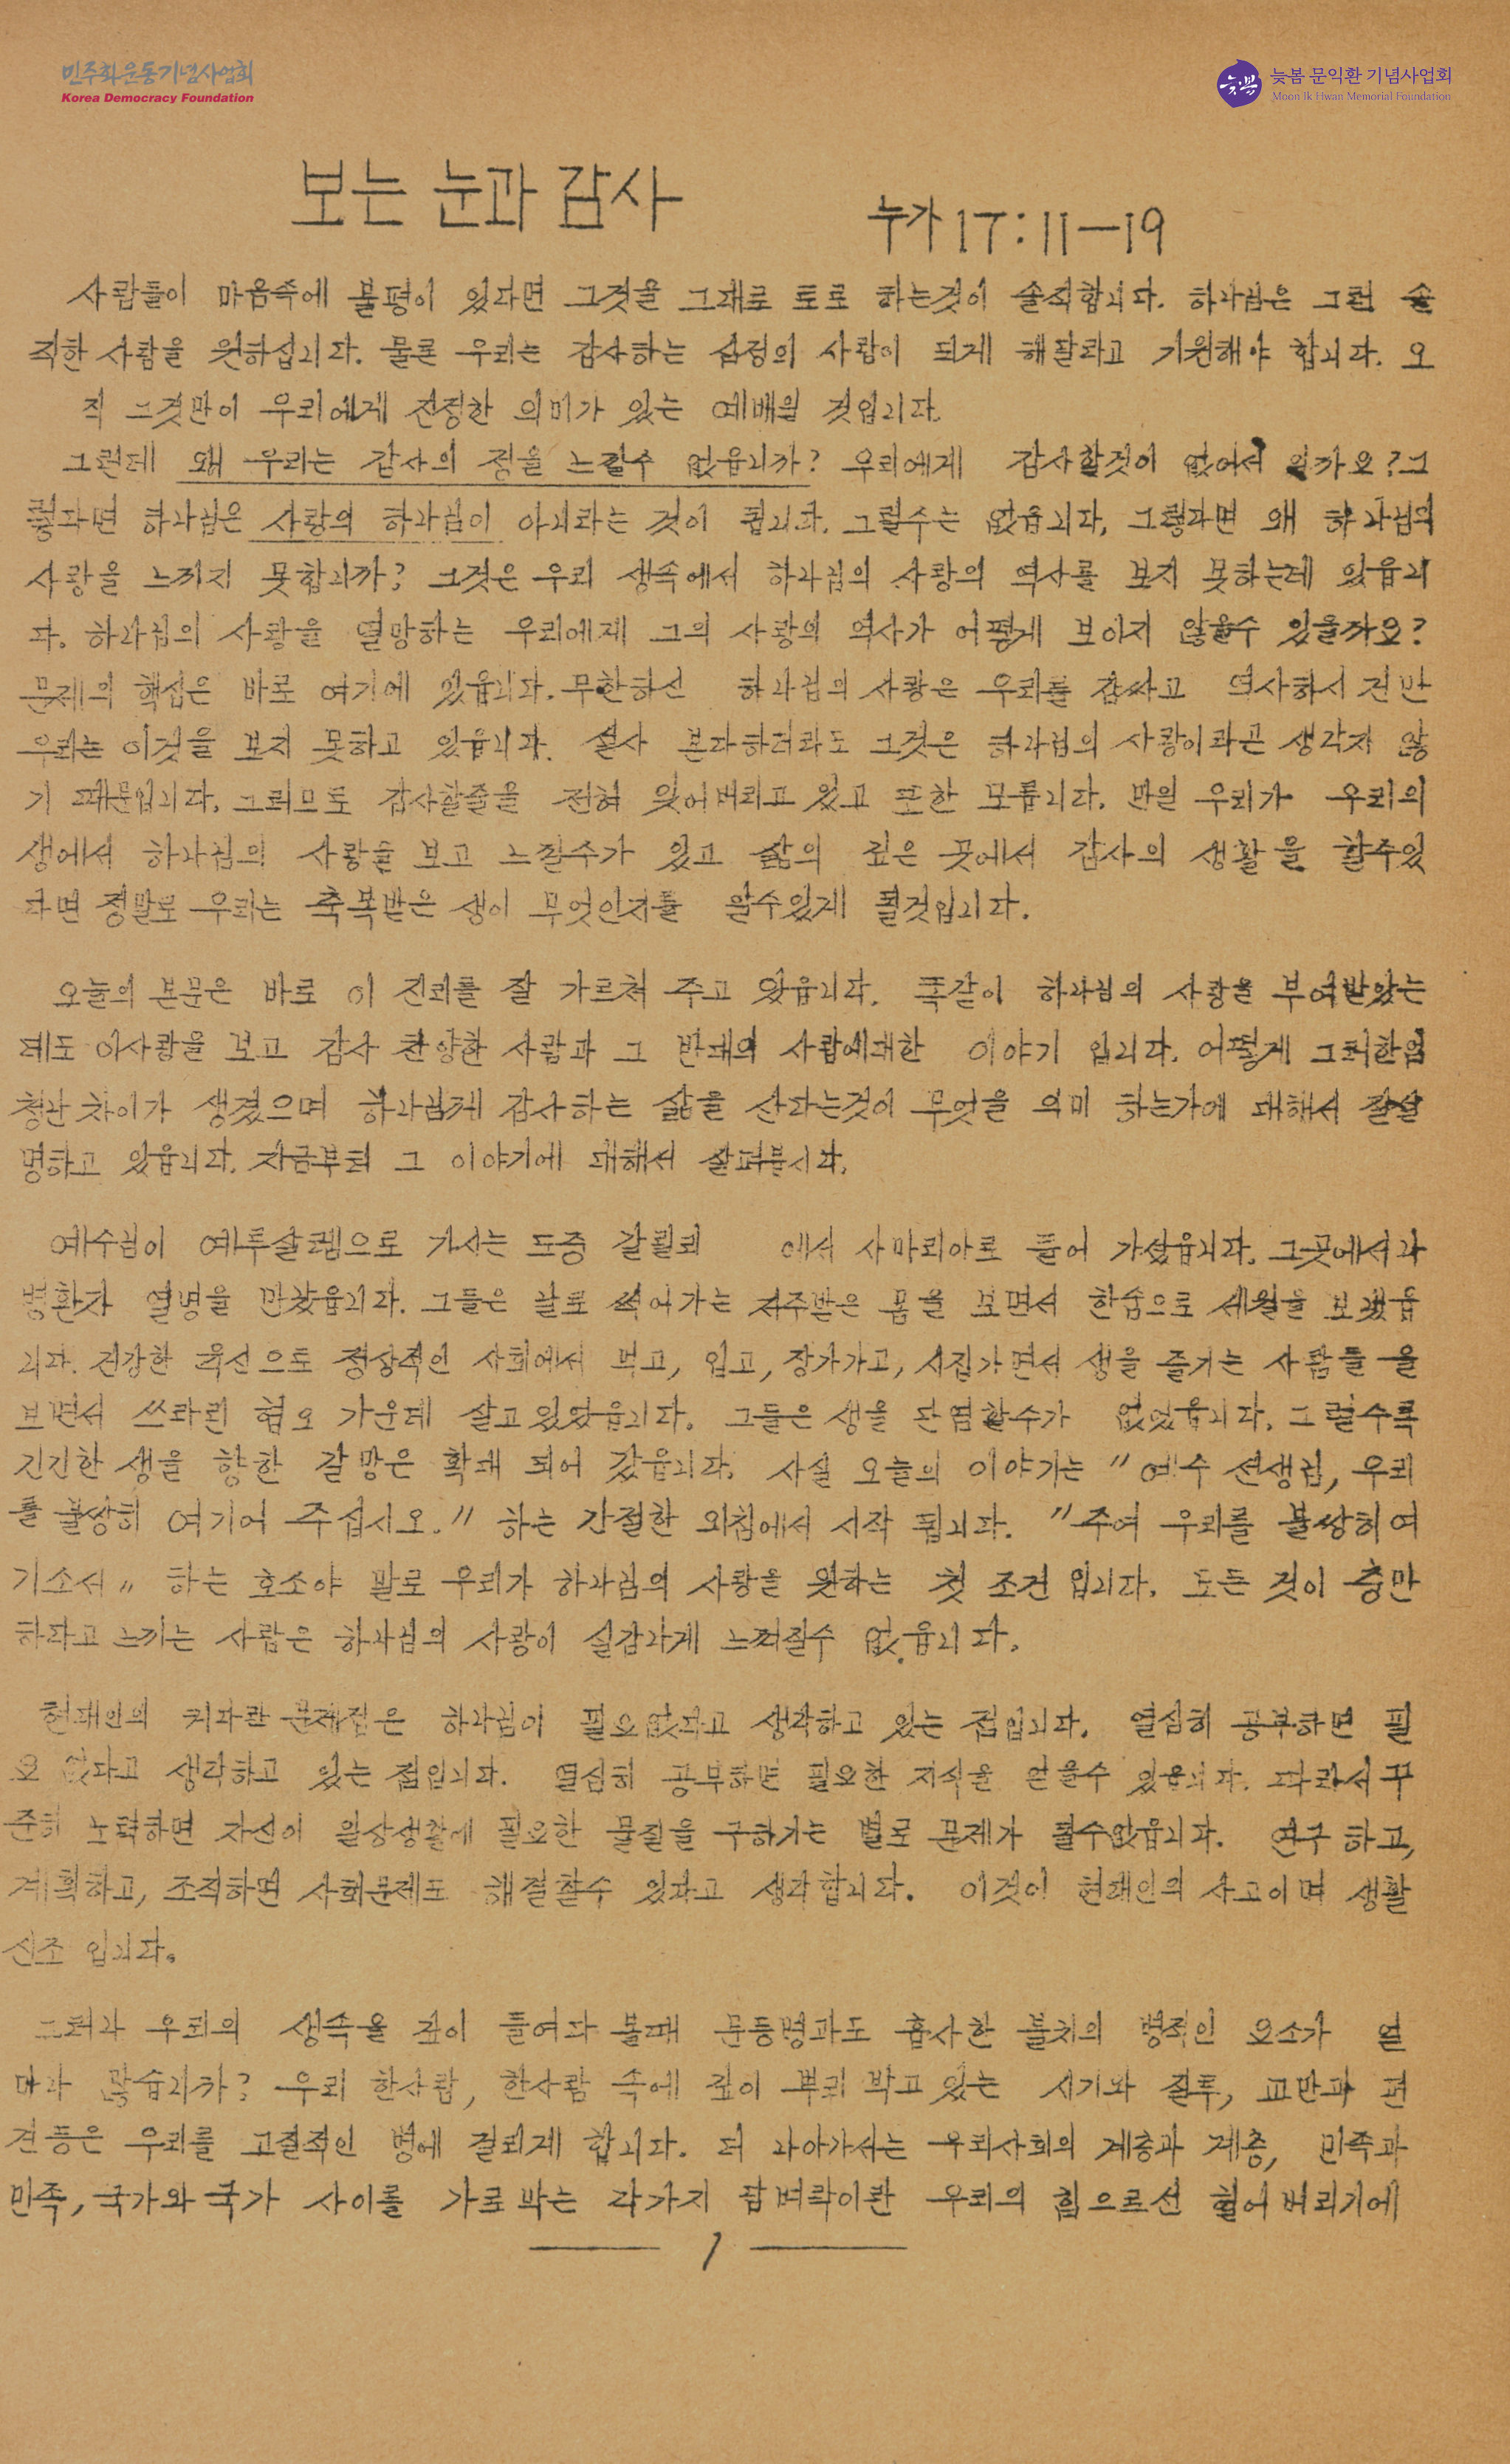 민주화운동기념사업회
Korea Democracy Foundation
늦봄
늦봄 문익환 기념사업회
Moon Ik Hwan Memorial Foundation
보는 눈과 감사
누가 17:11—19
사람들이 마음속에 불평이 있다면 그것을 그대로 토로 하는것이 솔직합니다. 하나님은 그런 솔
직한 사람을 원하십니다. 물론 우리는 감사하는 심정의 사람이 되게 해달라고 기원해야 합니다. 오
직 그것만이 우리에게 진정한 의미가 있는 예배일 것입니다.
그런데 왜 우리는 감사의 정을 느낄수 없읍니까? 우리에게 감사할것이 없어서 일까요? 그
렇다면 하나님은 사랑의 하나님이 아니라는 것이 됩니다. 그럴수는 없읍니다, 그렇다면 왜 하나님의
사랑을 느끼지 못합니까? 그것은 우리 생속에서 하나님의 사랑의 역사를 보지 못하는데 있읍니
다. 하나님의 사랑을 열망하는 우리에게 그의 사랑의 역사가 어떻게 보이지 않을수 있을까요?
문제의 핵심은 바로 여기에 있읍니다. 무한하신 하나님의 사랑은 우리를 감싸고 역사하시 건만
우리는 이것을 보지 못하고 있읍니다. 설사 본다하더라도 그것은 하나님의 사랑이라곤 생각지 않
기 때문입니다. 그러므로 감사할줄을 전혀 잊어버리고 있고 또한 모릅니다. 만일 우리가 우리의
생에서 하나님의 사랑을 보고 느낄수가 있고 삶의 깊은 곳에서 감사의 생활을 할수있
다면 정말로 우리는 축복받은 생이 무엇인지를 알수있게 될것입니다.
오늘의 본문은 바로 이 진리를 잘 가르쳐 주고 있읍니다. 똑같이 하나님의 사랑을 부여받았는
데도 이사랑을 보고 감사 찬양한 사람과 그 반대의 사람에대한 이야기 입니다. 어떻게 그러한엄
청난 차이가 생겼으며 하나님께 감사하는 삶을 산다는것이 무엇을 의미 하는가에 대해서 잘설
명하고 있읍니다. 지금부터 그 이야기에 대해서 살펴봅시다.
예수님이 예루살렘으로 가시는 도중 갈릴리 에서 사마리아로 들어 가셨읍니다. 그곳에서나
병환자 열명을 만났읍니다. 그들은 날로 썩어가는 저주받은 몸을 보면서 한숨으로 세월을 보냈읍
니다. 건강한 육신으로 정상적인 사회에서 먹고, 입고, 장가가고, 시집가면서 생을 즐기는 사람들 을
보면서 쓰라린 혐오 가운데 살고있었읍니다. 그들은 생을 단념할수가 없었읍니다. 그럴수록
긴긴한 생을 향한 갈망은 확대 되어 갔읍니다. 사실 오늘의 이야기는 "예수 선생님, 우리
를 불쌍히 여기여 주십시오." 하는 간절한 외침에서 시작 됩니다. "주여 우리를 불쌍히여
기소서" 하는 호소야 말로 우리가 하나님의 사랑을 원하는 첫 조건 입니다. 모든 것이 충만
하다고 느끼는 사람은 하나님의 사랑이 실감나게 느껴질수 없읍니다.
현대인의 커다란 문제점은 하나님이 필요없다고 생각하고 있는 점입니다. 열심히 공부하면 필
요 없다고 생각하고 있는 점입니다. 열심히 공부하면 필요한 지식을 얻을수 있읍니다. 따라서 꾸
준히 노력하면 자신이 일상생활에 필요한 물질을 구하기는 별로 문제가 될수없읍니다. 연구 하고,
계획하고, 조직하면 사회문제도 해결할수 있다고 생각합니다. 이것이 현대인의 사고이며 생활
신조 입니다.
그러나 우리의 생속을 깊이 들여다 볼때 문둥병과도 흡사한 불치의 병적인 요소가 얼
마나 많습니까? 우리 한사람, 한사람 속에 깊이 뿌리 박고 있는 시기와 질투, 교만과 편
견등은 우리를 고질적인 병에 걸리게 합니다. 더 나아가서는 우리사회의 계층과 계층, 민족과
민족, 국가와 국가 사이를 가로 막는 각가지 담벼락이란 우리의 힘으로선 헐어 버리기에
1